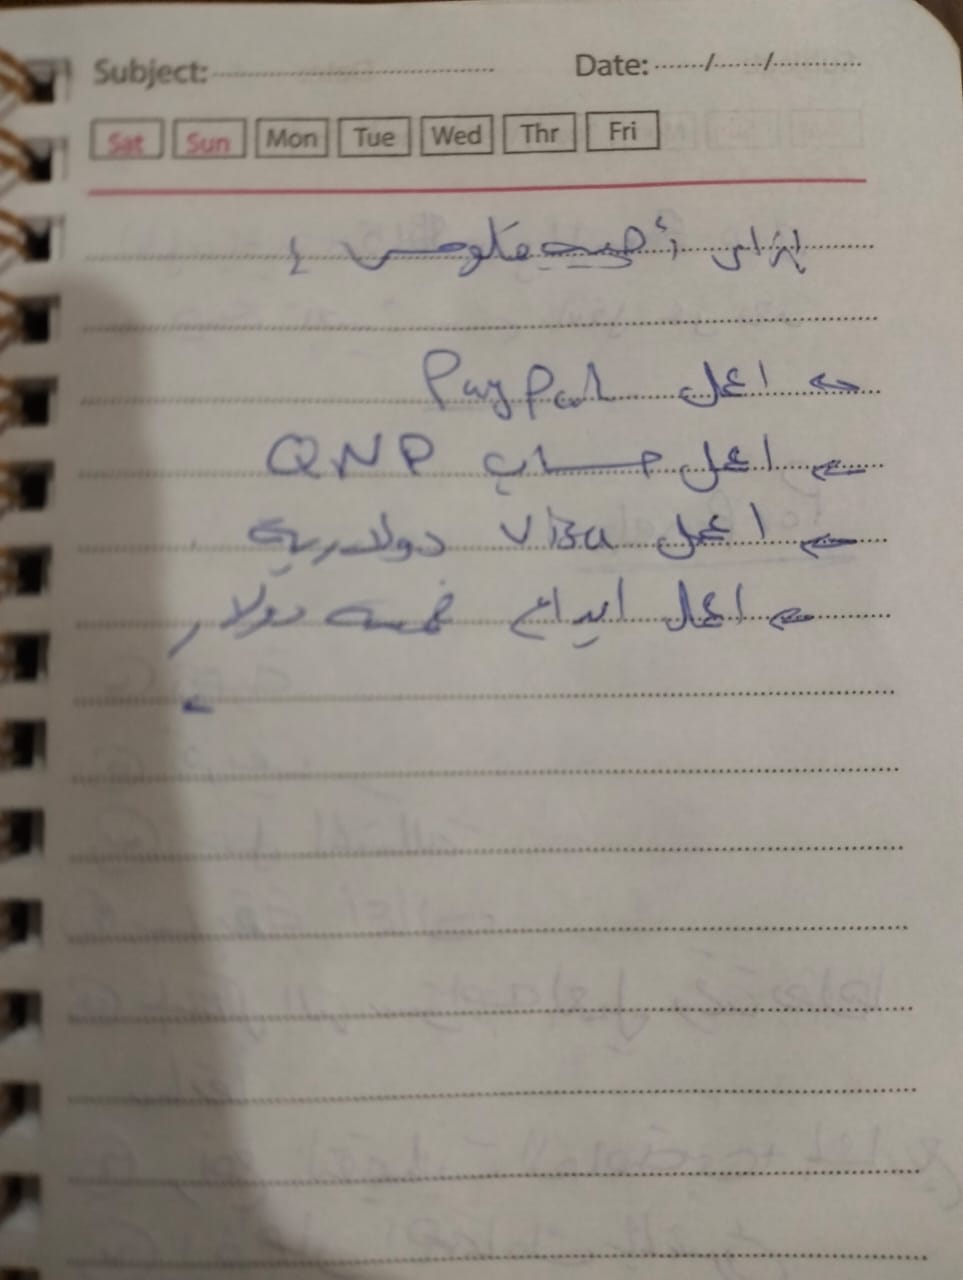 Subject: Date: / /
Sat Sun Mon Tue Wed Thr Fri
ازاى
← اعمل PayPal
← اعمل حساب QNP
← اعمل Visa دولارية
← اعمل ايداع خمسة دولار